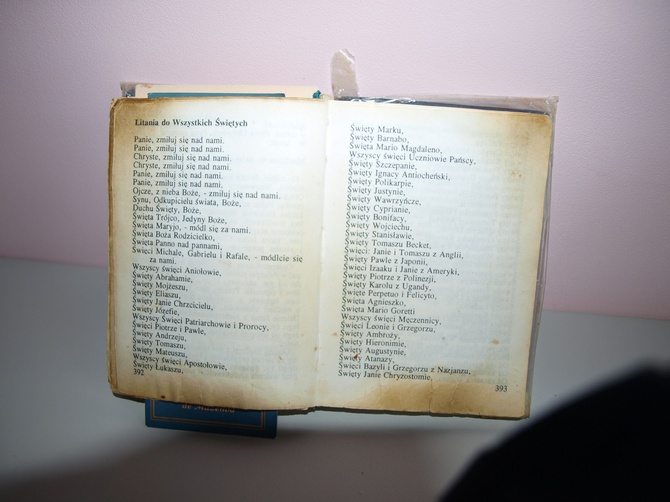 Litania do Wszystkich Świętych
Panie, zmiłuj się nad nami.
Panie, zmiłuj się nad nami.
Chryste, zmiłuj się nad nami.
Chryste, zmiłuj się nad nami.
Panie, zmiłuj się nad nami.
Panie, zmiłuj się nad nami.
Ojcze, z nieba Boże, - zmiłuj się nad nami.
Synu, Odkupicielu świata, Boże,
Duchu Święty, Boże,
Święta Trójco, Jedyny Boże,
Święta Maryjo, - módl się za nami.
Święta Boża Rodzicielko,
Święta Panno nad pannami,
Święci Michale, Gabrielu i Rafale, - módlcie się
za nami.
Wszyscy święci Aniołowie,
Święty Abrahamie,
Święty Mojżeszu,
Święty Eliaszu,
Święty Janie Chrzcicielu,
Święty Józefie,
Wszyscy Święci Patriarchowie i Prorocy,
Święci Piotrze i Pawle,
Święty Andrzeju,
Święty Tomaszu,
Święty Mateuszu,
Wszyscy święci Apostołowie,
Święty Łukaszu,
392
Święty Marku,
Święty Barnabo,
Święta Mario Magdaleno,
Wszyscy święci Uczniowie Pańscy,
Święty Szczepanie,
Święty Ignacy Antiocheński,
Święty Polikarpie,
Święty Justynie,
Święty Wawrzyńcze,
Święty Cyprianie,
Święty Bonifacy,
Święty Wojciechu,
Święty Stanisławie,
Święty Tomaszu Becket,
Święci Janie i Tomaszu z Anglii,
Święty Pawle z Japonii,
Święci Izaaku i Janie z Ameryki,
Święty Piotrze z Polinezji,
Święty Karolu z Ugandy,
Święte Perpetuo i Felicyto,
Święta Agnieszko,
Święta Mario Goretti
Wszyscy święci Męczennicy,
Święci Leonie i Grzegorzu,
Święty Ambroży,
Święty Hieronimie,
Święty Augustynie,
Święty Atanazy,
Święci Bazyli i Grzegorzu z Nazjanzu,
Święty Janie Chryzostomie,
393